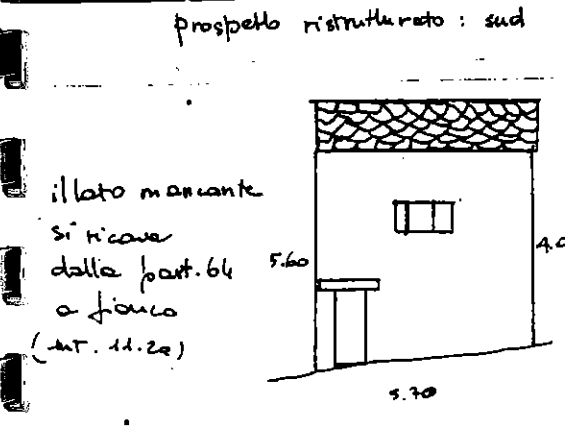 prospetto ristrutturato : sud
il lato mancante
si ricava
dalla part. 64
a fianco
(mT. 11.20)
5.60
4.0
5.70